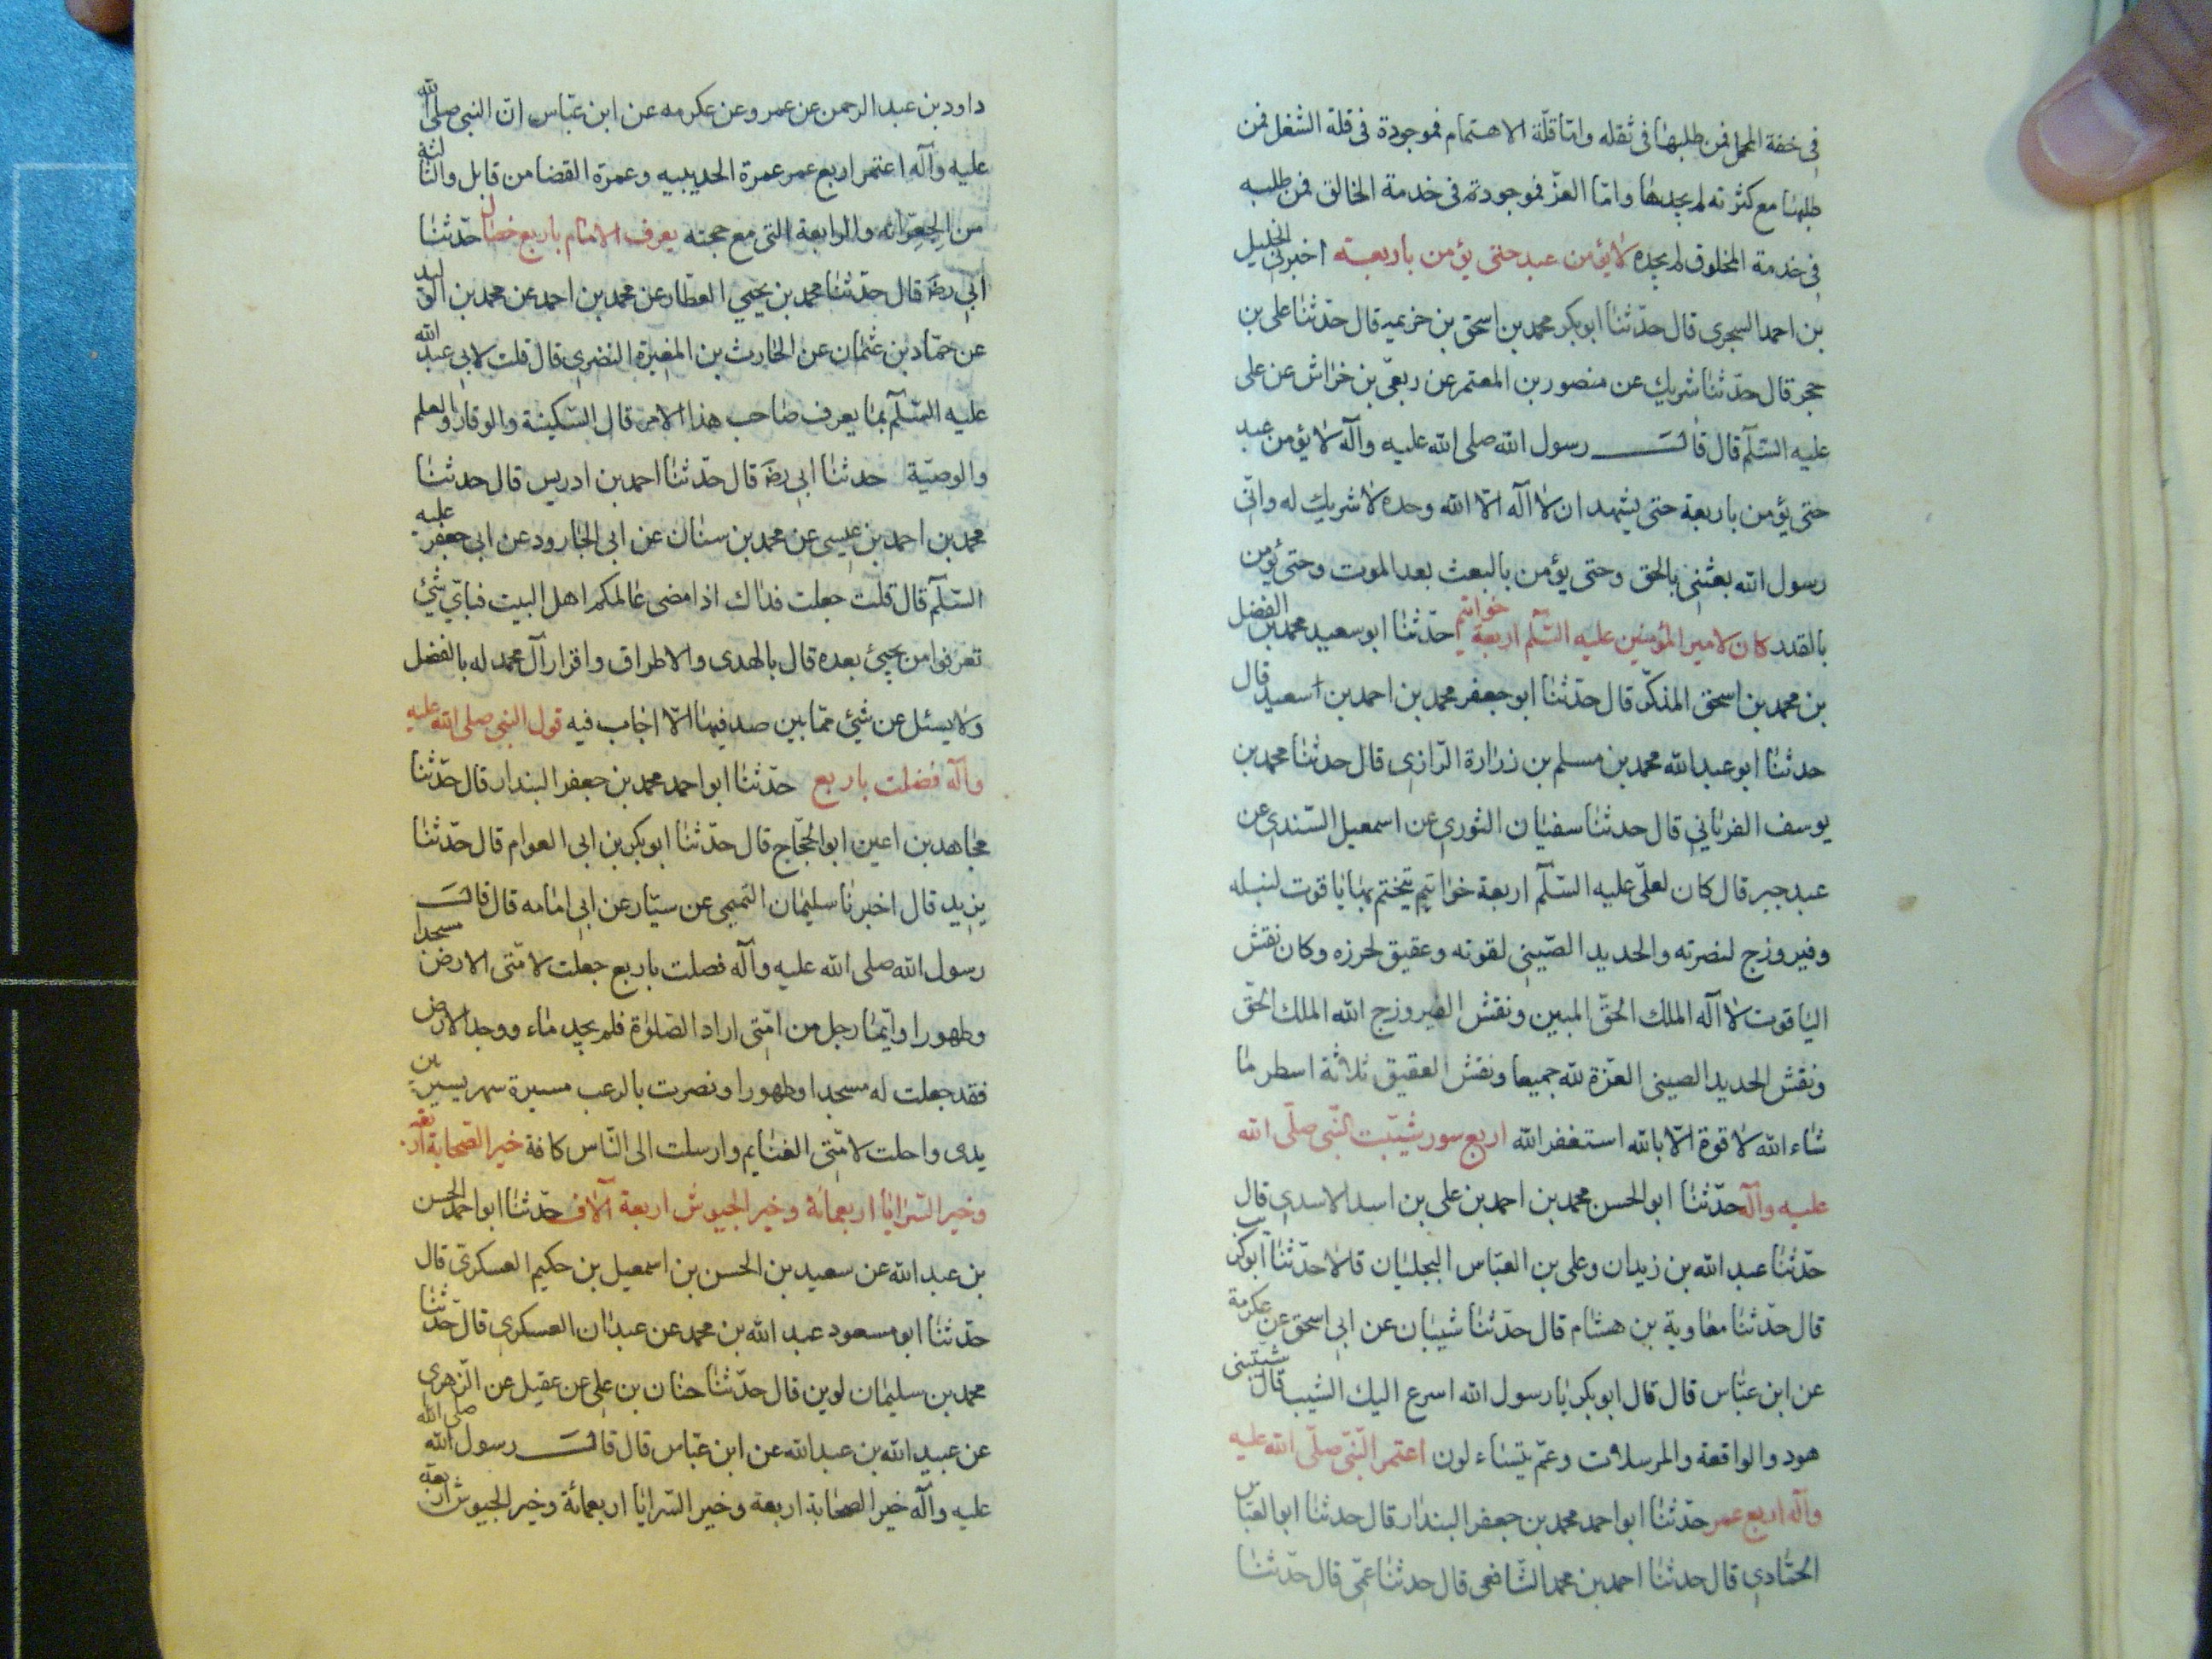 في خفة المحمل فمن طلبها في ثقله وامّا قلّة الاهتمام فموجودة في قلة الشغل فمن
طلبها مع كثرته لم يجدها وامّا العزّ فموجودة في خدمة الخالق فمن طلبه
في خدمة المخلوق لم يجده لا يؤمن عبد حتى يؤمن باربعة اخبرني الخليل
بن احمد السجري قال حدّثنا ابو بكر محمد بن اسحق بن خزيمه قال حدّثنا على بن
حجر قال حدّثنا شريك عن منصور بن المعتمر عن ربعيّ بن خراش عن على
عليه السّلم قال قال رسول الله صلى الله عليه وآله لا يؤمن عبد
حتى يؤمن باربعة حتى يشهد ان لا اله الّا الله وحده لا شريك له وانّي
رسول الله بعثني بالحق وحتى يؤمن بالبعث بعد الموت وحتى يؤمن
بالقدر كان لامير المؤمنين عليه السّلم اربعة خواتيم حدّثنا ابو سعيد محمد بن الفضل
بن محمد بن اسحق المذكّر قال حدّثنا ابو جعفر محمد بن احمد بن سعيد قال
حدثنا ابو عبد الله محمد بن مسلم بن زرارة الرّازى قال حدثنا محمد بن
يوسف الفريابي قال حدثنا سفيان الثوري عن اسمعيل السّندي عن
عبد خير قال كان لعلّي عليه السّلم اربعة خواتيم يتختم بها ياقوت لنبله
وفيروزج لنصرته والحديد الصّيني لقوته وعقيق لحرزه وكان نقش
الياقوت لا اله الملك الحقّ المبين ونقش الفيروزج الله الملك الحقّ
ونقش الحديد الصيني العزّة لله جميعا ونقش العقيق ثلاثة اسطر ما
شاء الله لا قوة الّا بالله استغفر الله اربع سور شيّبت النّبي صلّى الله
عليه وآله حدّثنا ابو الحسن محمد بن احمد بن على بن اسد الاسدي قال
حدّثنا عبد الله بن زيدان وعلى بن العبّاس البجليان قالا حدّثنا ابو كريب
قال حدّثنا معاوية بن هشام قال حدّثنا شيبان عن ابي اسحق عن عكرمة
عن ابن عبّاس قال قال ابو بكر يا رسول الله اسرع اليك الشيب قال شيّبتني
هود والواقعة والمرسلات وعمّ يتساءلون اعتمر النّبيّ صلّى الله عليه
وآله اربع عمر حدّثنا ابو احمد محمد بن جعفر البندار قال حدثنا ابو العبّاس
الحمّادي قال حدثنا احمد بن محمد الشّافعى قال حدثنا عمّي قال حدّثنا
داود بن عبد الرحمن عن عمرو عن عكرمه عن ابن عبّاس انّ النبي صلى الله
عليه وآله اعتمر اربع عمر عمرة الحديبيه وعمرة القضا من قابل والثالثة
من الجعرّانه والرابعة التى مع حجته يعرف الامام باربع خصال حدّثنا
ابي رضَ قال حدّثنا محمد بن يحيي العطار عن محمد بن احمد عن محمد بن الوليد
عن حمّاد بن عثمان عن الحارث بن المغيرة النضري قال قلت لابي عبد الله
عليه السّلم بما يعرف صاحب هذا الامر قال السّكينة والوقار والعلم
والوصيّة حدثنا ابي رضَ قال حدّثنا احمد بن ادريس قال حدثنا
محمد بن احمد بن عيسى عن محمد بن سنان عن ابي الجارود عن ابي جعفر عليه
السّلم قال قلت جعلت فداك اذا مضى عالمكم اهل البيت فبايّ شئ
تعرفوا من يجيئ بعده قال بالهدى والاطراق واقرار آل محمد له بالفضل
ولا يسئل عن شئ ممّا بين صدفيها الّا اجاب فيه قول النبي صلى الله عليه
وآله فضلت باربع حدّثنا ابو احمد محمد بن جعفر البندار قال حدّثنا
مجاهد بن اعين ابو الحجّاج قال حدّثنا ابو بكر بن ابى العوام قال حدّثنا
يزيد قال اخبرنا سليمان التميمي عن سيّار عن ابي امامه قال قال
رسول الله صلى الله عليه وآله فصلت باربع جعلت لامّتى الارض مسجدا
وطهورا وايّما رجل من امّتي اراد الصّلوة فلم يجد ماء ووجد الارض
فقد جعلت له مسجدا وطهورا ونصرت بالرعب مسيرة شهر يسير بين
يدى واحلت لامّتى الغنايم وارسلت الى النّاس كافة خير الصّحابة اربعة
وخير السّرايا اربعمائة وخير الجيوش اربعة آلاف حدّثنا ابو احمد الحسن
بن عبد الله عن سعيد بن الحسن بن اسمعيل بن حكيم العسكريّ قال
حدّثنا ابو مسعود عبد الله بن محمد عن عبدان العسكري قال حدّثنا
محمد بن سليمان لوين قال حدّثنا حنان بن على عن عقيل عن الزهرى
عن عبيد الله بن عبد الله عن ابن عبّاس قال قال رسول الله صلى الله
عليه وآله خير الصحابة اربعة وخير السّرايا اربعمائة وخير الجيوش اربعة